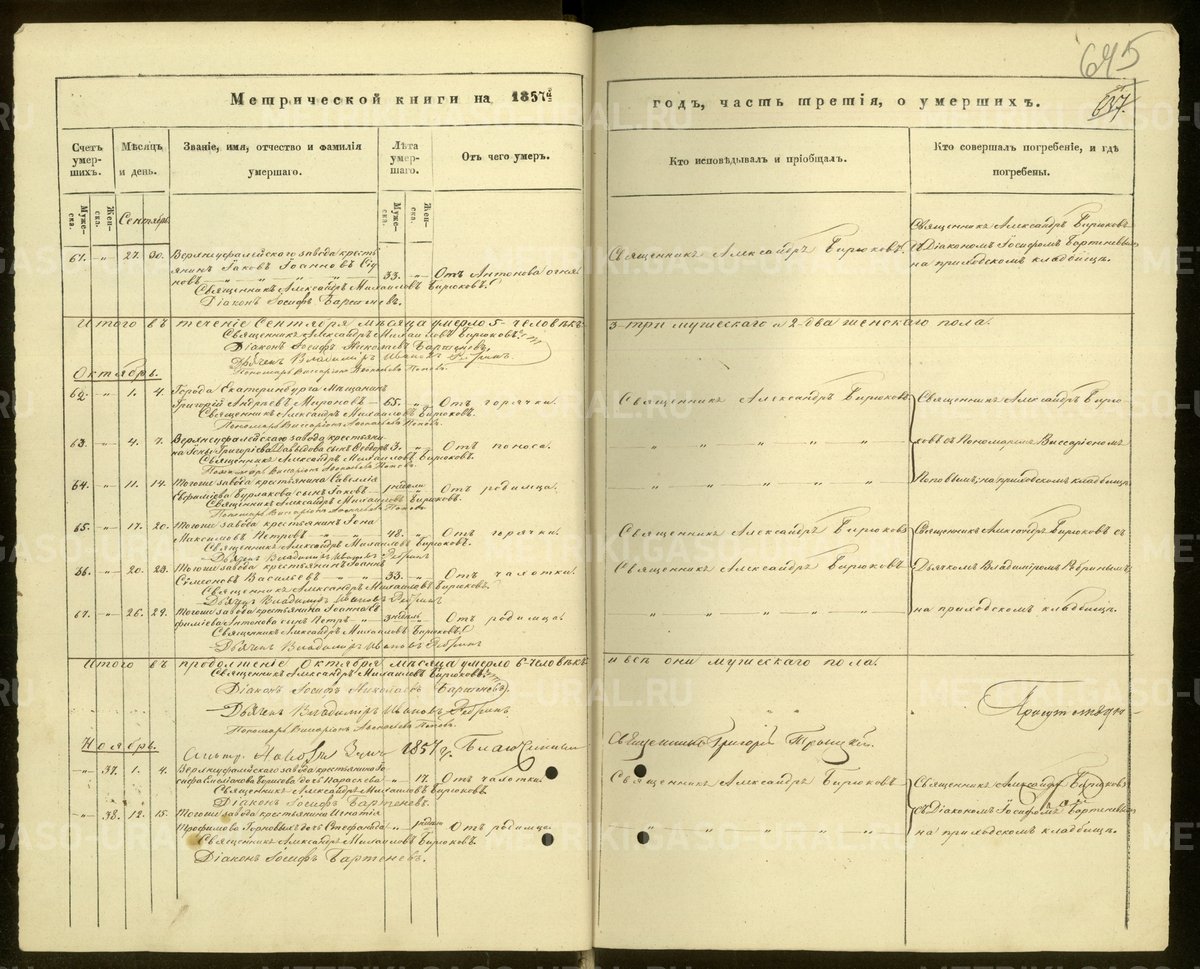 645
637.
Метрической книги на 1857й
годъ, часть третія, о умершихъ.
Счетъ умер-шихъ.
Мѣсяцъ и день.
Званіе, имя, отчество и фамилія умершаго.
Лѣта умер-шаго.
Отъ чего умеръ.
Кто исповѣдывалъ и пріобщалъ.
Кто совершалъ погребеніе, и гдѣ погребены.
Муже-ска.
Жен-ска.
Сентябрь.
Муже-ска.
Жен-ска.
61. „ 27. 30. Верхнеуфалейскаго завода кресть-
янинъ Іаковъ Іоанновъ
новъ 33. „ Отъ Антонова огня.
Священникъ Александръ Михаиловъ Бирюковъ.
Діаконъ Іосифъ Бартеневъ.
Священникъ Александръ Бирюковъ.
Священникъ Александръ Бирюковъ
съ Діакономъ Іосифомъ Бартеневымъ
на приходскомъ кладбищѣ.
Итого въ теченіе Сентября мѣсяца умерло 5 человѣкъ
3 три мужескаго и 2 два женскаго пола.
Священникъ Александръ Михаиловъ Бирюковъ.
Діаконъ Іосифъ Николаевъ Бартеневъ.
Дьячекъ Владиміръ Ивановъ Ребринъ.
Пономарь Виссаріонъ Поповъ.
Октябрь.
62. „ 1. 4. Города Екатеринбурга Мѣщанинъ
Григорій Андреевъ Мироновъ 65. „ Отъ горячки.
Священникъ Александръ Михаиловъ Бирюковъ.
Пономарь Виссаріонъ Поповъ.
Священникъ Александръ Бирюковъ
Священникъ Александръ Бирю-
63. „ 4. 7. Верхнеуфалейскаго завода крестьяни-
на Іоны Григоріева Давыдова сынъ Ѳеодоръ 3. „ Отъ поноса.
Священникъ Александръ Михаиловъ Бирюковъ.
Пономарь Виссаріонъ Поповъ.
„ „ „ „ „
ковъ съ Пономаремъ Виссаріономъ
64. „ 11. 14. Тогоже завода крестьянина Савелія
Евфиміева Бурлакова сынъ Іаковъ недѣли „ Отъ родимца.
Священникъ Александръ Михаиловъ Бирюковъ.
Пономарь Виссаріонъ Поповъ.
„ „ „ „ „
Поповымъ, на приходскомъ кладбищѣ.
65. „ 17. 20. Тогоже завода крестьянинъ Іона
Максимовъ Петровъ 48. „ Отъ горячки.
Священникъ Александръ Михаиловъ Бирюковъ.
Дьячекъ Владиміръ Ивановъ Ребринъ
Священникъ Александръ Бирюковъ
Священникъ Александръ Бирюковъ съ
66. „ 20. 23. Тогоже завода крестьянинъ Іоаннъ
Сѵмеоновъ Васильевъ 33. „ Отъ чахотки.
Священникъ Александръ Михаиловъ Бирюковъ.
Дьячекъ Владиміръ Ивановъ Ребринъ
Священникъ Александръ Бирюковъ
Дьячкомъ Владиміромъ Ребринымъ
67. „ 26. 29. Тогоже завода крестьянина Іоанна Ев-
фиміева Антонова сынъ Петръ 3 недѣли „ Отъ родимца.
Священникъ Александръ Михаиловъ Бирюковъ.
Дьячекъ Владиміръ Ивановъ Ребринъ
„ „ „ „ „
на приходскомъ кладбищѣ.
Итого въ продолженіе Октября мѣсяца умерло 6 человѣкъ
и всѣ они мужескаго пола.
Священникъ Александръ Михаиловъ Бирюковъ.
Діаконъ Іосифъ Николаевъ Бартеневъ.
Дьячекъ Владиміръ Ивановъ Ребринъ.
Пономарь Виссаріонъ Поповъ.
Ноябрь.
1857 г. Благочинный
Священникъ Григорій Троицкій.
„ 37. 1. 4. Верхнеуфалейскаго завода крестьянина
дочь Параскева „ 17. Отъ чахотки.
Священникъ Александръ Михаиловъ Бирюковъ.
Діаконъ Іосифъ Бартеневъ.
Священникъ Александръ Бирюковъ
Священникъ Александръ Бирюковъ
съ Діакономъ Іосифомъ Бартеневымъ
„ 38. 12. 15. Тогоже завода крестьянина Игнатія
Трофимова Горновыхъ дочь Стефанида „ недѣли Отъ родимца.
Священникъ Александръ Михаиловъ Бирюковъ.
Діаконъ Іосифъ Бартеневъ.
„ „ „ „ „
на приходскомъ кладбищѣ.
METRIKI.GASO-URAL.RU